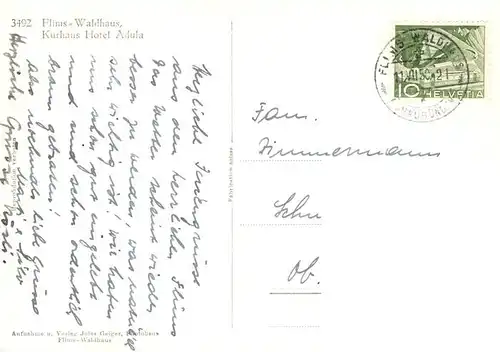 3492 Flims-Waldhaus,
Kurhaus Hotel Adula
Herzliche Feriengrüsse
aus dem herrlichen Flims
Das Wetter scheint wieder
besser zu werden, was natürlich
sehr wichtig ist! Wir haben
uns schon gut eingelebt
und sind schon ordentlich
braun gebraten!
nochmals liebe Grüsse
Herzliche Grüsse
FLIMS WALDH
HELVETIA
10
Fam.
Zimmermann
Ob.
Aufnahme u. Verlag Jules Geiger, Photohaus
Flims-Waldhaus